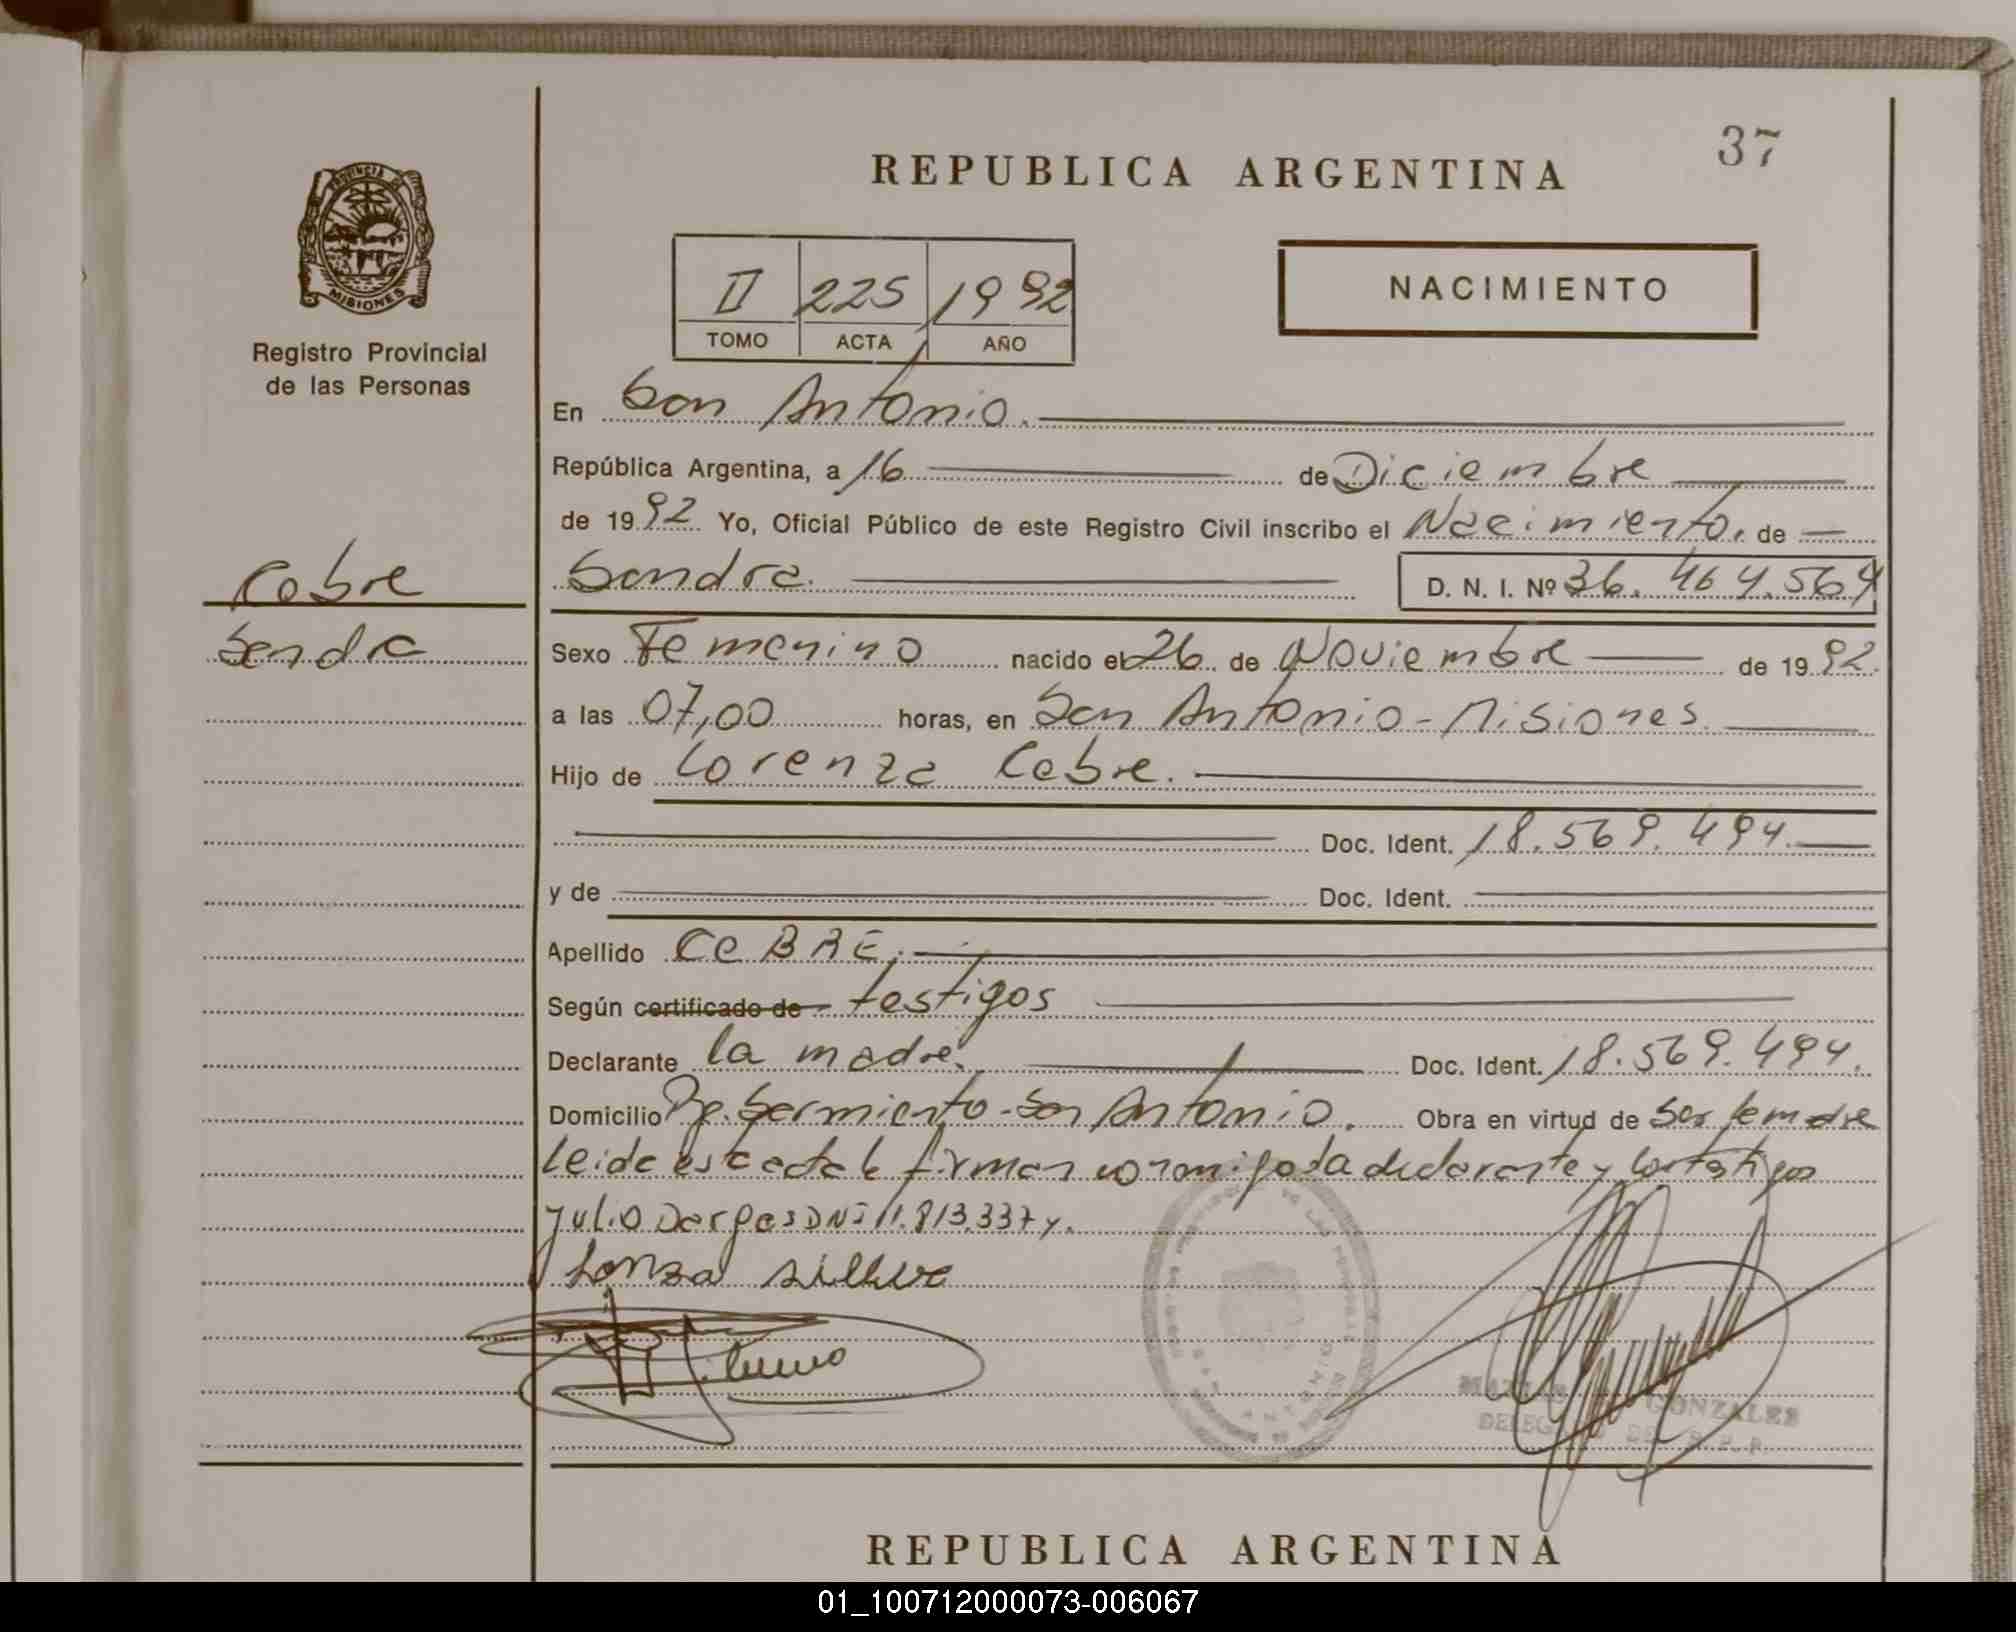 37
REPUBLICA ARGENTINA
PROVINCIA DE
MISIONES
Registro Provincial
de las Personas
II 225 1992
TOMO ACTA AÑO
NACIMIENTO
En San Antonio.
República Argentina, a 16 de Diciembre
de 1992 Yo, Oficial Público de este Registro Civil inscribo el Nacimiento. de
Cabre
Sandra. D. N. I. Nº 36.464.564
Sandra
Sexo Femenino nacido el 26 de Noviembre de 1992.
a las 07,00 horas, en San Antonio - Misiones.
Hijo de Lorenza Cabre.
Doc. Ident. 18.569.494.
y de Doc. Ident.
Apellido CaBRE.
Según certificado de testigos
Declarante la madre. Doc. Ident. 18.569.494.
Domicilio Sarmiento - San Antonio. Obra en virtud de ser la madre
Leida esta acta la firman conmigo la declarante y los testigos
Julio DNI 11.813.337 y.
GONZALES
REPUBLICA ARGENTINA
01_100712000073-006067